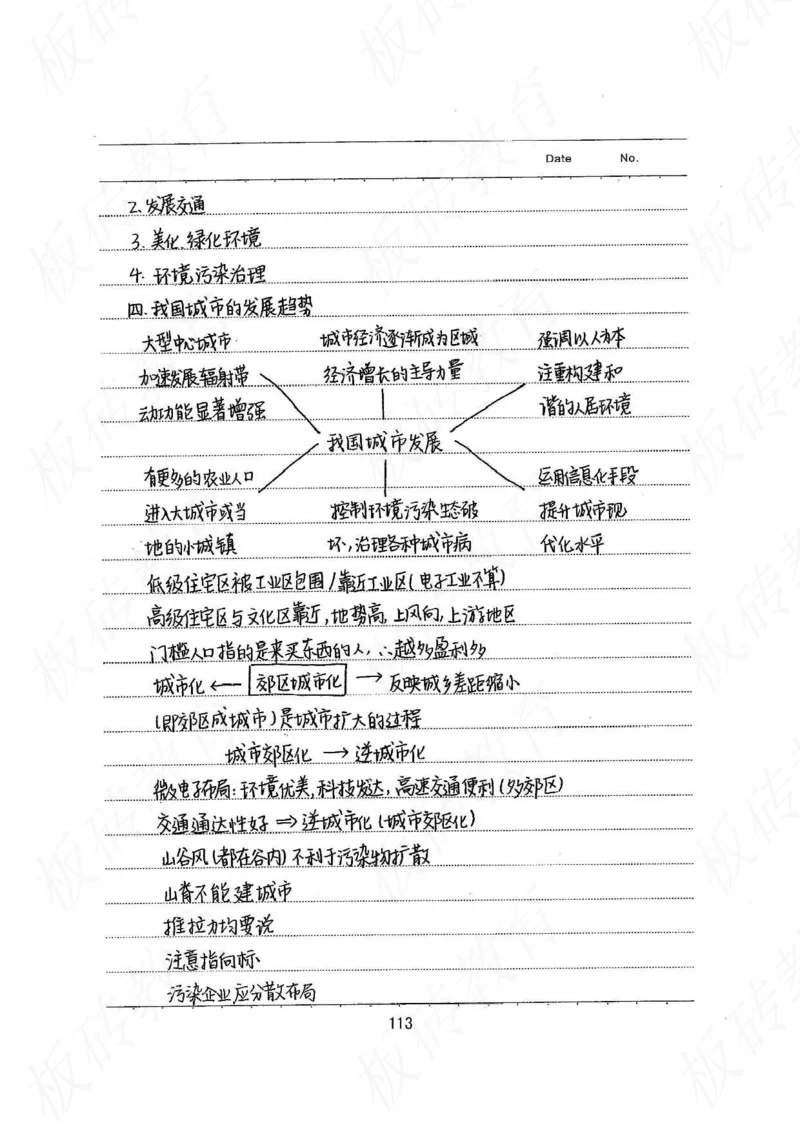 Date No.
2.发展交通
3.美化.绿化环境
4.环境污染治理
四.我国城市的发展趋势
大型中心城市 城市经济逐渐成为区域 强调以人为本
加速发展辐射带 经济增长的主导力量 注重构建和
动功能显著增强 谐的人居环境
我国城市发展
有更多的农业人口 运用信息化手段
进入大城市或当 控制环境污染生态破 提升城市现
地的小城镇 坏,治理各种城市病 代化水平
低级住宅区被工业区包围/靠近工业区(电子工业不算)
高级住宅区与文化区靠近,地势高,上风向,上游地区
门槛人口指的是来买东西的人,∴越多盈利多
城市化 ← 郊区城市化 → 反映城乡差距缩小
(即郊区成城市)是城市扩大的过程
城市郊区化 → 逆城市化
微电子布局:环境优美,科技发达,高速交通便利(多郊区)
交通通达性好 ⇒ 逆城市化(城市郊区化)
山谷风(都在谷内)不利于污染物扩散
山脊不能建城市
推拉力均要说
注意指向标
污染企业应分散布局
113
板砖教育